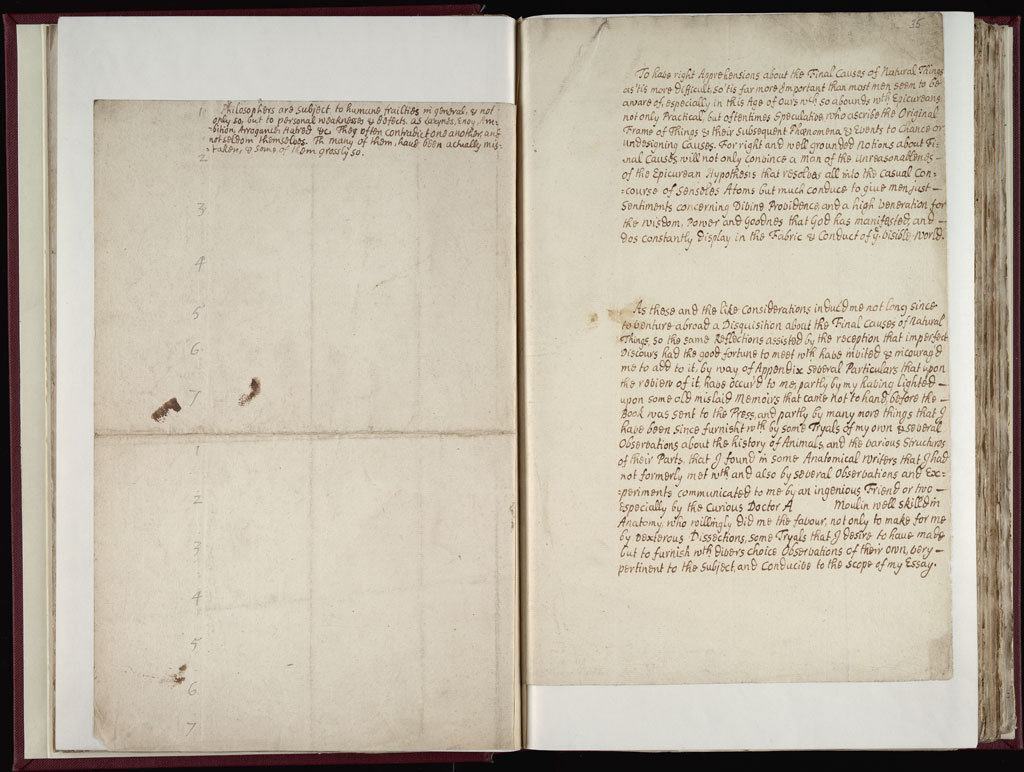 1
Philosophers are subject to humane frailties in general, & not
only so, but to personal weaknesses & defects, as Envy, Am=
=bition, Arrogance, Hatred &c. They often contradict one another, and
not seldom themselves. Th many of them, have been actually mis=
=taken, & some of them grossly so.
2
3
4
5
6
7
1
2
3
4
5
6
7
35
To have right Apprehensions about the Final Causes of Natural Things
as 'tis more difficult, so 'tis far more Important than most men seem to be
aware of, especially in this Age of Ours wch so abounds wth Epicureans
not only Practical, but oftentimes Speculative, who ascribe the Original
Frame of Things & their Subsequent Phænomena & Events to Chance or
undesigning Causes. For right and well grounded Notions about Fi=
=nal Causes, will not only Convince a Man of the Unreasonablenes
of the Epicurean Hypothesis that resolves all into the Casual Con=
=course of Sensoles Atoms but much conduce to give men just
Sentiments concerning Divine Providence, and a high veneration for
the Wisdom, Power and Goodnes that God has manifested, and
dos constantly display in the Fabric & Conduct of ye visible world.
As these and the like Considerations induc'd me not long since
to venture abroad a Disquisition about the Final Causes of Natural
Things, so the same Reflections assisted by the reception that imperfect
Discours had the good fortune to meet wth, have invited & incourag'd
me to add to it, by way of Appendix several Particulars that upon
the review of it have occur'd to me, partly by my having lighted
upon some old mislaid Memoirs that came not to hand, before the
Book was sent to the Press, and partly by many more things that I
have been since furnisht wth by some Tryals of my own & several
Observations about the history of Animals, and the various Structures
of their Parts, that I found in some Anatomical Writers that I had
not formerly met wth and also by several Observations and Ex=
=periments communicated to me by an ingenious Friend or two
Especially by the Curious Doctor A Moulin well skilled in
Anatomy, who willingly did me the favour, not only to make for me
by Dexterous Dissections, some Tryals that I desire to have made
but to furnish wth divers choice Observations of their own, very
pertinent to the Subject, and Conducive to the scope of my Essay.